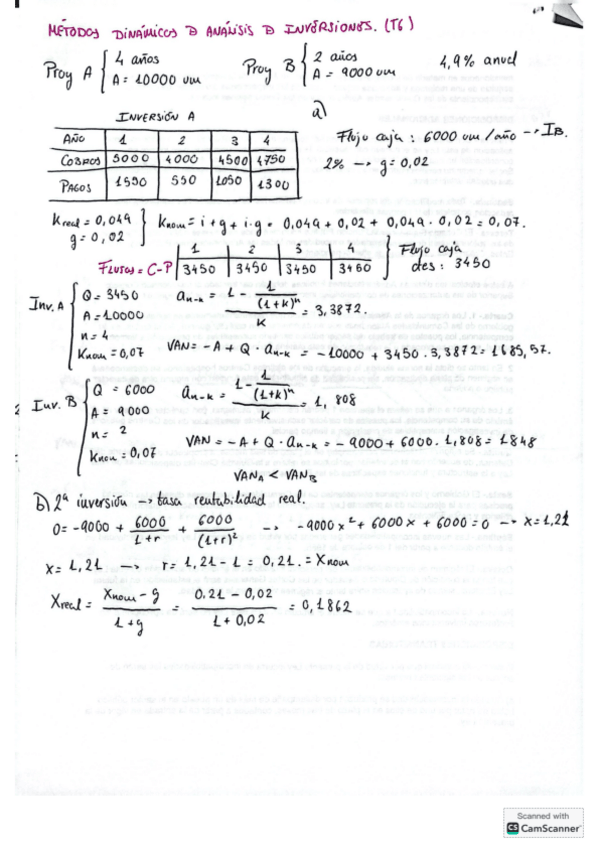 MÉTODOS DINÁMICOS D ANÁLISIS D INVERSIONES. (T6)
Proy A { 4 años A = 10000 um
Proy B { 2 años A = 9000 um
4,9% anual
INVERSIÓN A
AÑO 1 2 3 4
COBROS 5000 4000 4500 4750
PAGOS 1550 550 1050 1300
a)
Flujo caja : 6000 um/año → IB.
2% → g = 0,02
Kreal = 0,049
g = 0,02
Knom = i + g + i·g = 0,049 + 0,02 + 0,049 · 0,02 = 0,07.
1 2 3 4
FLUJOS = C-P 3450 3450 3450 3450
Flujo caja
ctes : 3450
Inv. A { Q = 3450 A = 10000 n = 4 Knom = 0,07
an¬k = (1 - 1/(1+k)^n)/K = 3,3872.
VAN = -A + Q · an¬k = -10000 + 3450 · 3,3872 = 1685,57.
Inv. B { Q = 6000 A = 9000 n = 2 Knom = 0,07
an¬k = (1 - 1/(1+k)^n)/K = 1,808
VAN = -A + Q · an¬k = -9000 + 6000 · 1,808 = 1848
VANA < VANB
b) 2ª inversión → tasa rentabilidad real.
0 = -9000 + 6000/(1+r) + 6000/(1+r)² → -9000x² + 6000x + 6000 = 0 → x = 1,21
x = 1,21 → r = 1,21 - 1 = 0,21. = Xnom
Xreal = (Xnom - g)/(1+g) = (0,21 - 0,02)/(1 + 0,02) = 0,1862
Scanned with
CS CamScanner